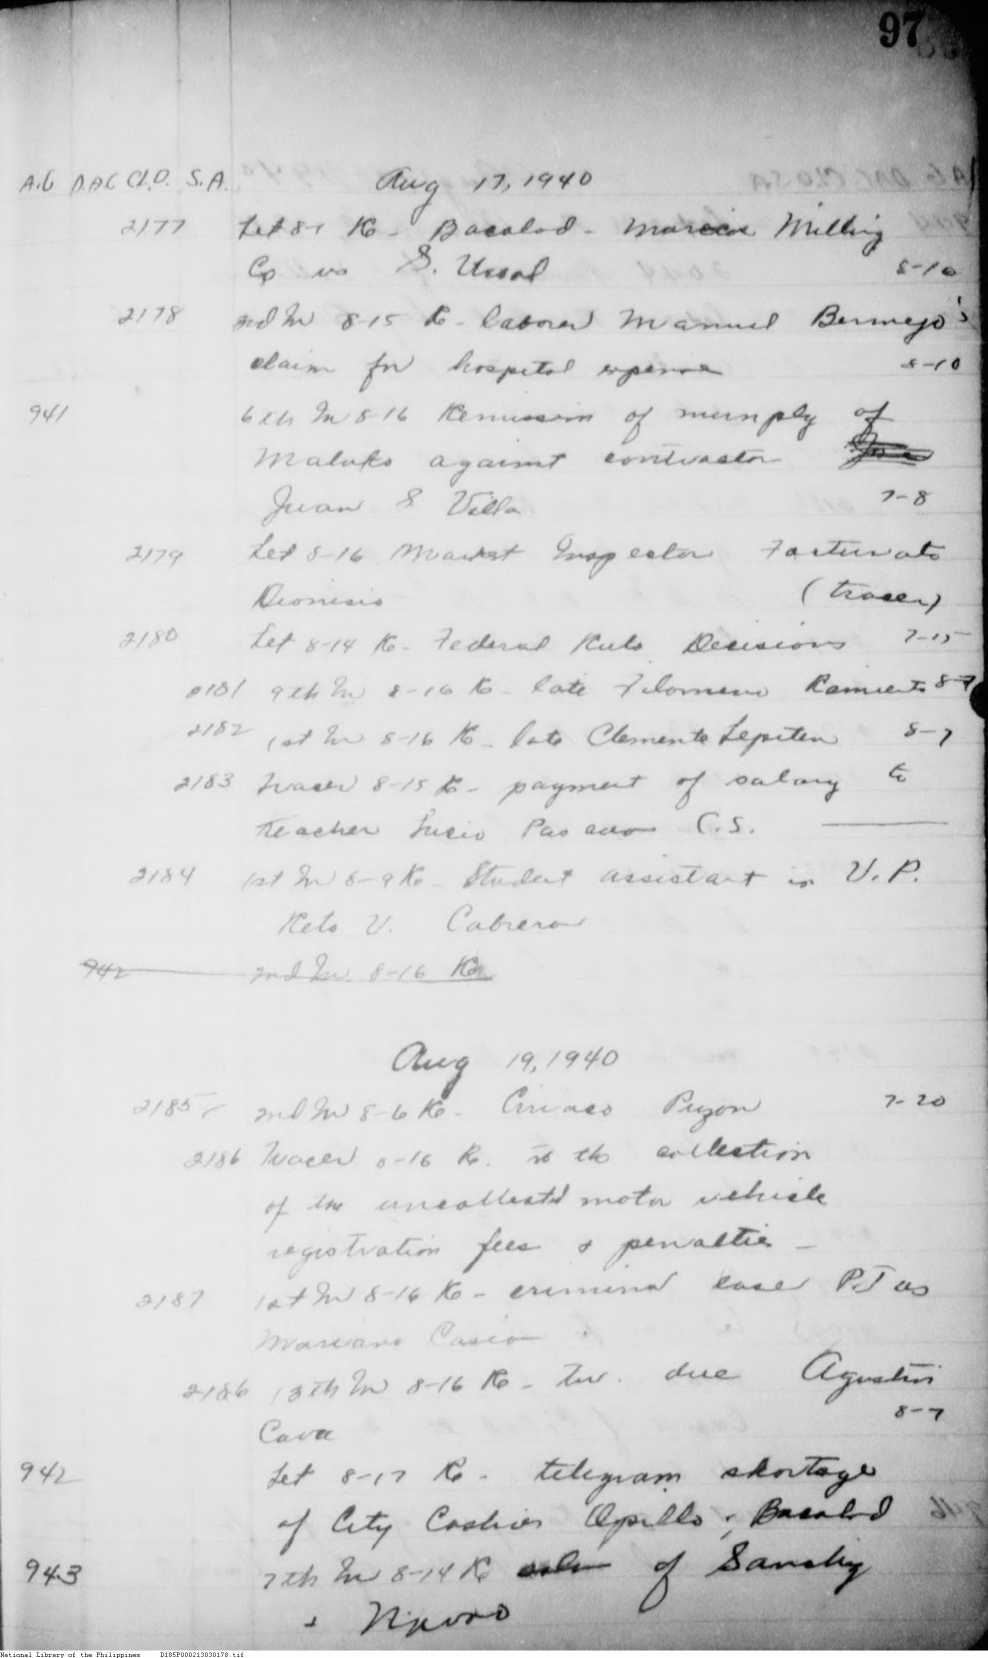 97
A.G D.A.C Cl.D. S.A. Aug 17, 1940
2177 Let 8-7 Re - Bacolod - Murcia Milling
Co vs S. Usual 8-10
2178 2nd In 8-15 Re - laborer Manuel Bermejo's
claim for hospital expense 8-10
941 6th In 8-16 Remission of of
Maluko against contractor
Juan S Villa 7-8
2179 Let 8-16 Market Inspector Fortunato
Dionisio (tracer)
2180 Let 8-14 Re - Federal Decisions 7-15
2181 9th In 8-16 Re - late Filomeno 8-7
2182 1st In 8-16 Re - late Clemente Lepiten 8-7
2183 Tracer 8-15 Re - payment of salary to
teacher Lucio C.S.
2184 1st In 8-9 Re - Student assistant in U.P.
V. Cabrera
942 2nd In 8-16 Re
Aug 19, 1940
2185 2nd In 8-6 Re - Ciriaco Puzon 7-20
2186 Tracer 8-16 Re. to the collection
of the uncollected motor vehicle
registration fees & penalties -
2187 1st In 8-16 Re - criminal case P.I vs
Mariano Casio
2188 13th In 8-16 Re - due Agustin
Cava 8-7
942 Let 8-17 Re - telegram shortage
of City Cashier Opillo, Bacolod
943 7th In 8-14 Re of
&
National Library of the Philippines D185P000213030170.tif